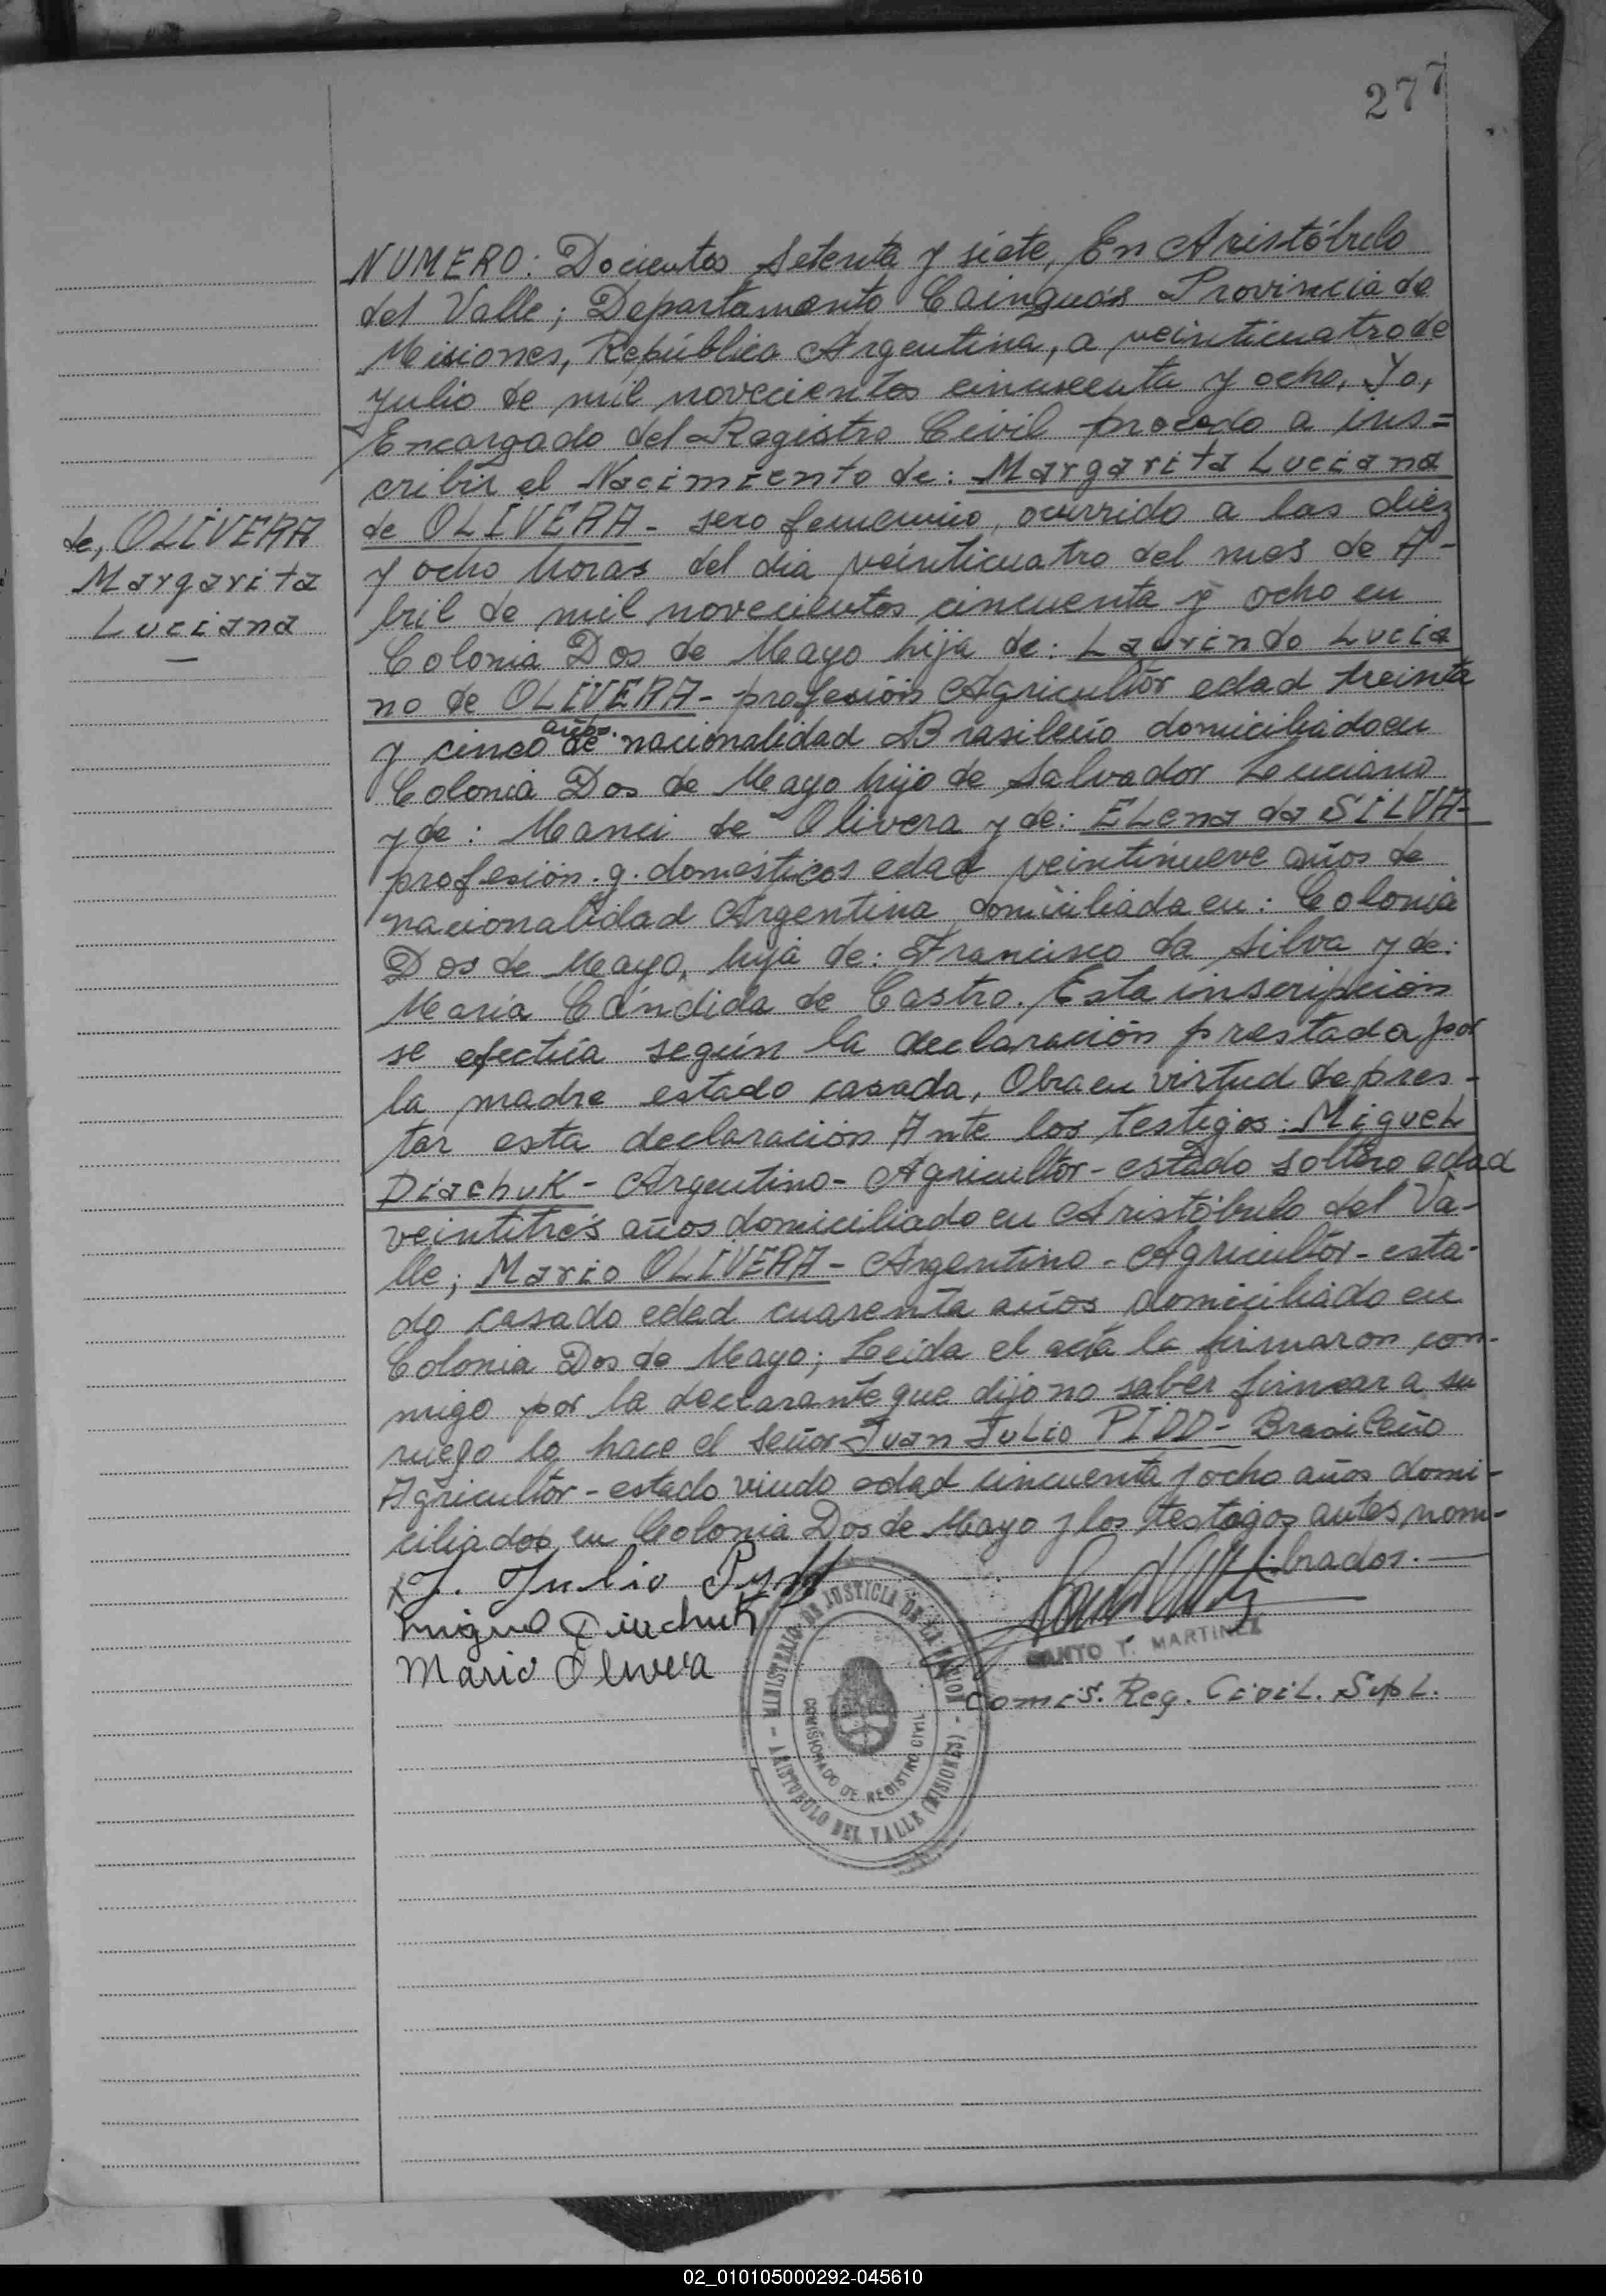 277
NUMERO: Docientos Setenta y siete, En Aristóbulo
del Valle; Departamento Cainguás Provincia de
Misiones, República Argentina, a veinticuatro de
Julio de mil novecientos cincuenta y ocho, Yo,
Encargado del Registro Civil procedo a ins=
cribir el Nacimiento de: Margarita Luciana
de OLIVERA - sexo femenino, ocurrido a las diez
y ocho horas del dia veinticuatro del mes de A-
bril de mil novecientos cincuenta y ocho en
Colonia Dos de Mayo hija de: Laurindo Lucia
no de OLIVERA - profesión Agricultor edad treinta
y cinco años de nacionalidad Brasileño domiciliado en
Colonia Dos de Mayo hijo de Salvador Luciano
y de: Manci de Olivera y de: ELena da SILVA-
profesión. g. domésticos edad veintinueve años de
nacionalidad Argentina domiciliada en: Colonia
Dos de Mayo, hija de: Francisco da Silva y de:
Maria Cándida de Castro. Esta inscripción
se efectúa según la declaración prestada por
la madre estado casada, Obra en virtud de pres-
tar esta declaración Ante los testigos: MigueL
DiachuK - Argentino - Agricultor - estado soltero edad
veintitrés años domiciliado en Aristóbulo del Va-
lle; Mario OLIVERA - Argentino - Agricultor - esta-
do casado edad cuarenta años domiciliado en
Colonia Dos de Mayo; Leida el acta la firmaron con-
migo por la declarante que dijo no saber firmar a su
ruego lo hace el señor Juan JuLio PIDD - Brasileño
Agricultor - estado viudo edad cincuenta y ocho años domi-
ciliados en Colonia Dos de Mayo y los testigos antes nom-
brados.
de, OLIVERA
Margarita
Luciana
J. Julio
Miguel Diachuk
Mario Olivera
SANTO T. MARTINEZ
Comis. Reg. CiviL. SupL.
MINISTERIO DE JUSTICIA DE LA NACION
COMISIONADO DE REGISTRO CIVIL
ARISTOBULO DEL VALLE (MISIONES)
02_010105000292-045610